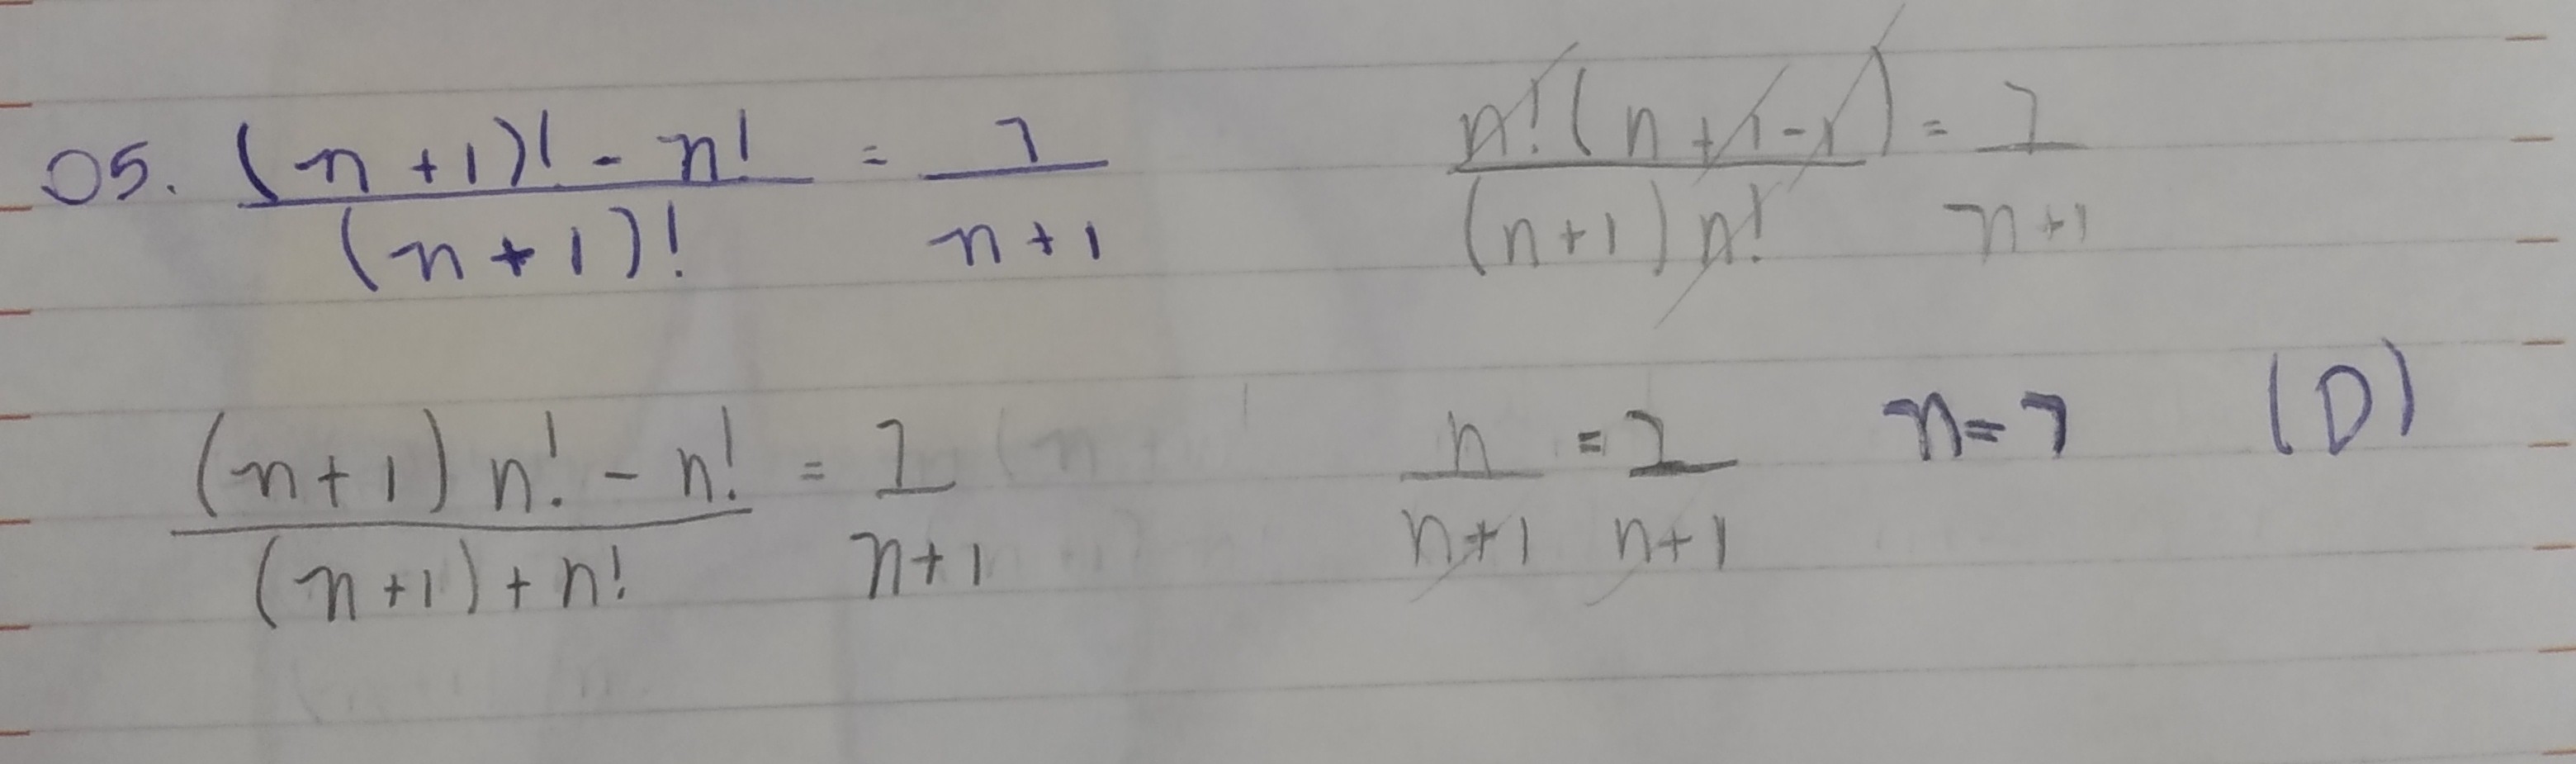 05. ((n+1)! - n!)/((n+1)!) = 7/(n+1)
(n!(n+1-1))/((n+1)n!) = 7/(n+1)
((n+1) n! - n!)/((n+1)+n!) = 7/(n+1)
n/(n+1) = 7/(n+1) n=7 (D)